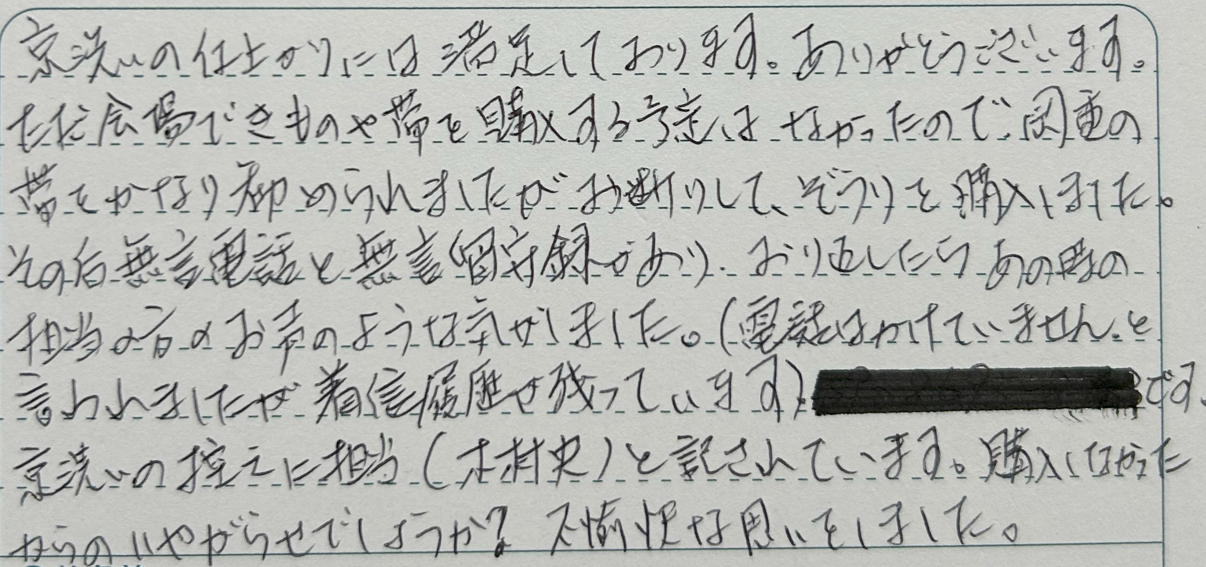 京洗いの仕上がりには満足しております。ありがとうございます。
ただ会場できものや帯を購入する予定はなかったので、関重の
帯をかなり勧められましたがお断りして、ぞうりを購入しました。
その后無言電話と無言留守録があり、おり返したらあの時の
担当の方のお声のような気がしました。(電話はかけていません。と
言われましたが着信履歴が残っています)です。
京洗いの控えに担当(木村史)と記されています。購入しなかった
からのいやがらせでしょうか?不愉快な思いをしました。